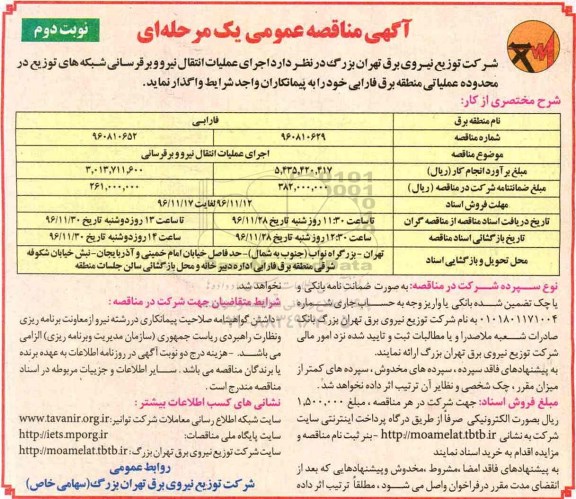 آگهی مناقصه عمومی یک مرحله‌ای
نوبت دوم
شرکت توزیع نیروی برق تهران بزرگ در نظر دارد اجرای عملیات انتقال نیرو و برقرسانی شبکه های توزیع در
محدوده عملیاتی منطقه برق فارابی خود را به پیمانکاران واجد شرایط واگذار نماید.
شرح مختصری از کار:
نام منطقه برق فارابی
شماره مناقصه ۹۶۰۸۱۰۶۲۹ ۹۶۰۸۱۰۶۵۲
موضوع مناقصه اجرای عملیات انتقال نیرو و برقرسانی
مبلغ برآورد انجام کار (ریال) ۵,۴۳۵,۴۲۰,۴۱۷ ۳,۰۱۳,۷۱۱,۶۰۰
مبلغ ضمانتنامه شرکت در مناقصه (ریال) ۳۸۲,۰۰۰,۰۰۰ ۲۶۱,۰۰۰,۰۰۰
مهلت فروش اسناد ۹۶/۱۱/۱۲ لغایت ۹۶/۱۱/۱۷
تاریخ دریافت اسناد مناقصه از مناقصه گران تا ساعت ۱۱:۳۰ روز شنبه تاریخ ۹۶/۱۱/۲۸ تا ساعت ۱۳ روز دوشنبه تاریخ ۹۶/۱۱/۳۰
تاریخ بازگشائی اسناد مناقصه ساعت ۱۲:۳۰ روز شنبه تاریخ ۹۶/۱۱/۲۸ ساعت ۱۴ روز دوشنبه تاریخ ۹۶/۱۱/۳۰
محل تحویل و بازگشایی اسناد تهران - بزرگراه نواب (جنوب به شمال) - حد فاصل خیابان امام خمینی و آذربایجان - نبش خیابان شکوفه
شرقی منطقه برق فارابی اداره دبیر خانه و محل بازگشائی سالن جلسات منطقه
نوع سپرده شرکت در مناقصه: به صورت ضمانت نامه بانکی و
یا چک تضمین شده بانکی یا واریز وجه به حساب جاری شماره
۰۱۰۱۸۰۱۱۷۱۰۰۴ به نام شرکت توزیع نیروی برق تهران بزرگ بانک
صادرات شعبه ملاصدرا و یا مطالبات ثبت و تایید شده نزد امور مالی
شرکت توزیع نیروی برق تهران بزرگ ارائه نمایند.
به پیشنهادهای فاقد سپرده ، سپرده های مخدوش ، سپرده های کمتر از
میزان مقرر ، چک شخصی و نظایر آن ترتیب اثر داده نخواهد شد.
مبلغ فروش اسناد: جهت شرکت در هر مناقصه ، مبلغ ۱,۵۰۰,۰۰۰
ریال بصورت الکترونیکی صرفاً از طریق درگاه پرداخت اینترنتی سایت
شرکت به نشانی http://moamelat.tbtb.ir -بنر ثبت نام مناقصه و
مزایده اقدام به خرید اسناد نمایند
به پیشنهادهای فاقد امضا ،مشروط ،مخدوش و پیشنهادهایی که بعد از
انقضای مدت مقرر در فراخوان واصل می شود ، مطلقاً ترتیب اثر داده
نخواهد شد.
شرایط متقاضیان جهت شرکت در مناقصه :
- داشتن گواهینامه صلاحیت پیمانکاری در رشته نیرو از معاونت برنامه ریزی
ونظارت راهبردی ریاست جمهوری (سازمان مدیریت و برنامه ریزی) الزامی
می باشد. - هزینه درج دو نوبت آگهی در روزنامه اطلاعات به عهده برنده
یا برندگان مناقصه می باشد. سایر اطلاعات و جزییات مربوطه در اسناد
مناقصه مندرج است .
نشانی های کسب اطلاعات بیشتر :
سایت شبکه اطلاع رسانی معاملات شرکت توانیر: www.tavanir.org.ir
سایت پایگاه ملی مناقصات: http://iets.mporg.ir
شرکت توزیع نیروی برق تهران بزرگ: http://moamelat.tbtb.ir
روابط عمومی
شرکت توزیع نیروی برق تهران بزرگ (سهامی خاص)